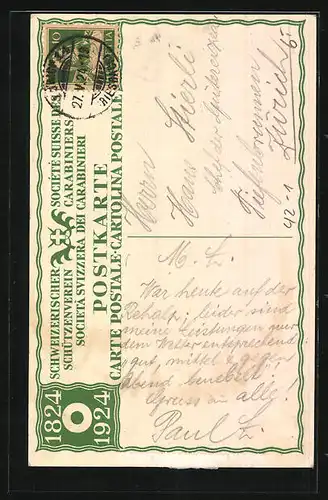 SCHWEIZERISCHER SCHÜTZENVEREIN
SOCIÉTÉ SUISSE DES CARABINIERS
SOCIETÀ SVIZZERA DEI CARABINIERI
POSTKARTE
CARTE POSTALE-CARTOLINA POSTALE
1824
1924
27. V. 24
10
Herrn
Hans Stierli
Chef der
Tiefenbrunnen
Zürich
42-1
M. L.
War heute auf der
Rehalp, leider sind
meine Leistungen nur
dem Wetter entsprechend
gut, mittel & gegen
Abend benebelt!
Gruss an alle!
Paul